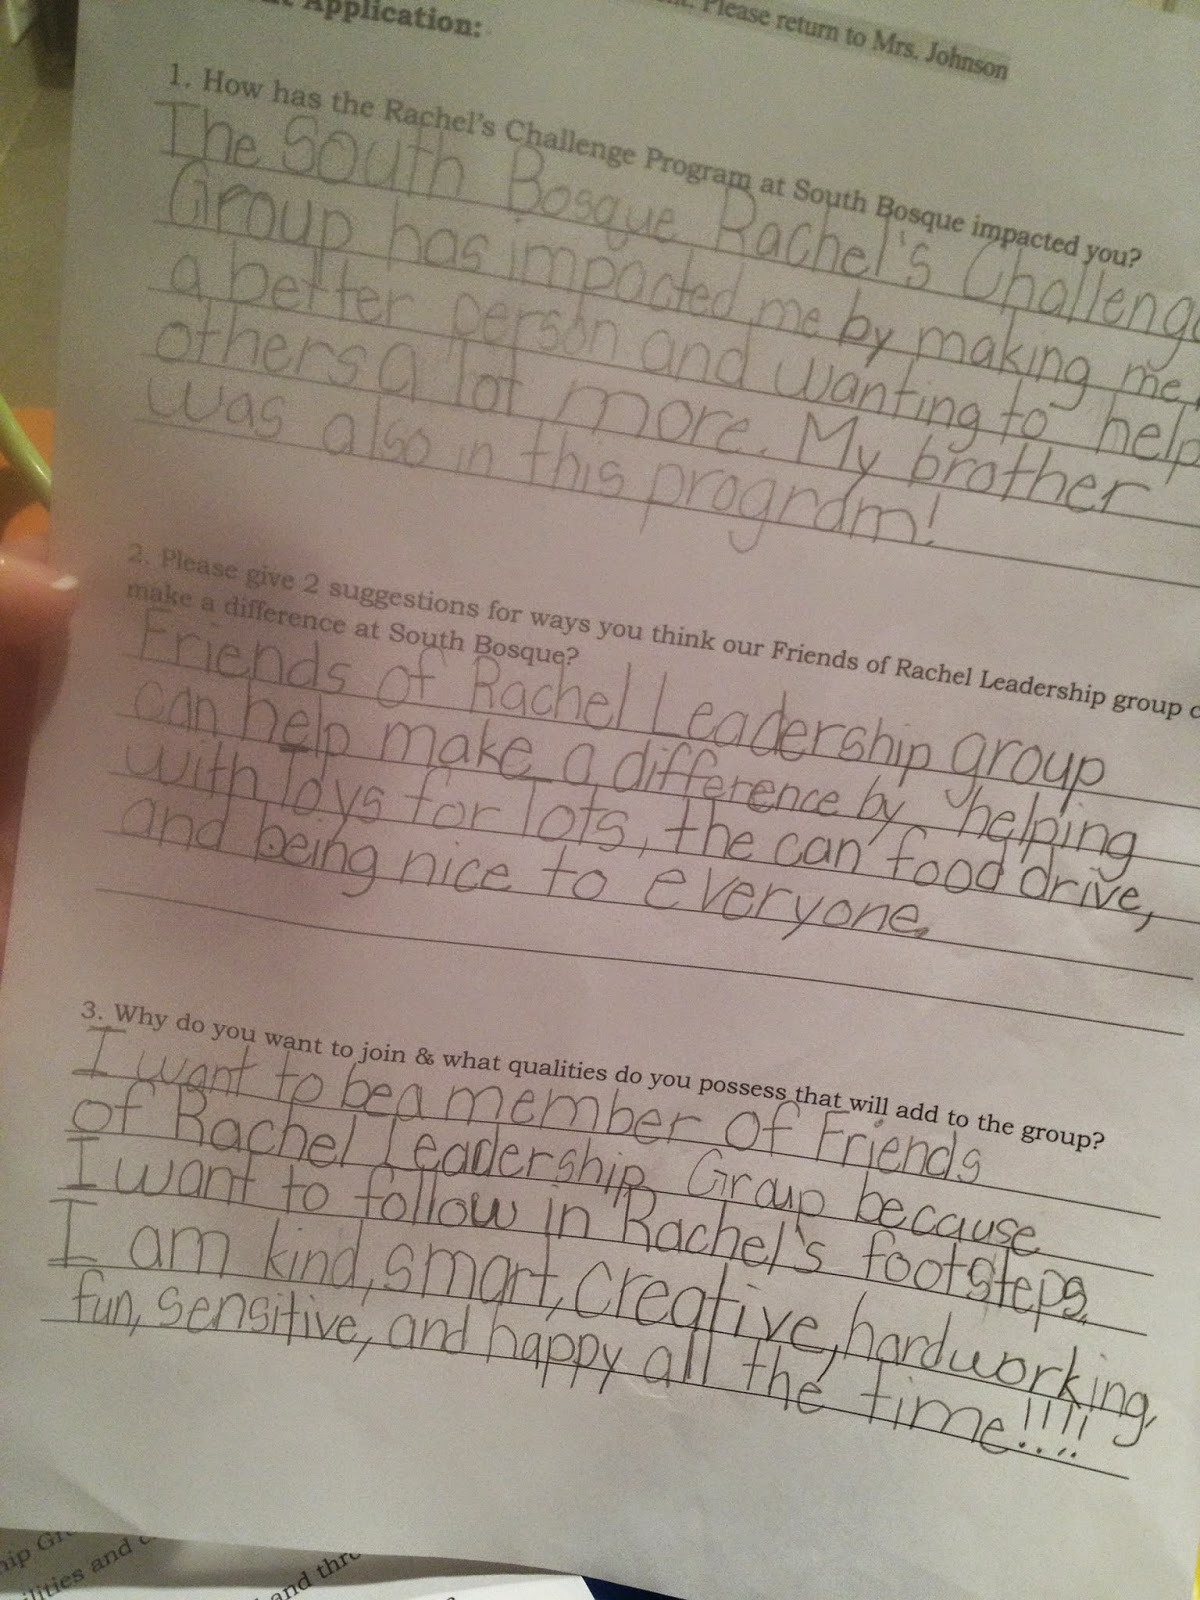 Application:
Please return to Mrs. Johnson
1. How has the Rachel's Challenge Program at South Bosque impacted you?
The South Bosque Rachel's Challenge
Group has impacted me by making me
a better person and wanting to help
others a lot more. My brother
was also in this program!
2. Please give 2 suggestions for ways you think our Friends of Rachel Leadership group
make a difference at South Bosque?
Friends of Rachel Leadership group
can help make a difference by helping
with Toys for Tots, the can food drive,
and being nice to everyone.
3. Why do you want to join & what qualities do you possess that will add to the group?
I want to be a member of Friends
of Rachel Leadership Group because
I want to follow in Rachel's footsteps.
I am kind, smart, creative, hardworking,
fun, sensitive, and happy all the time!!!!
and
lities and
and